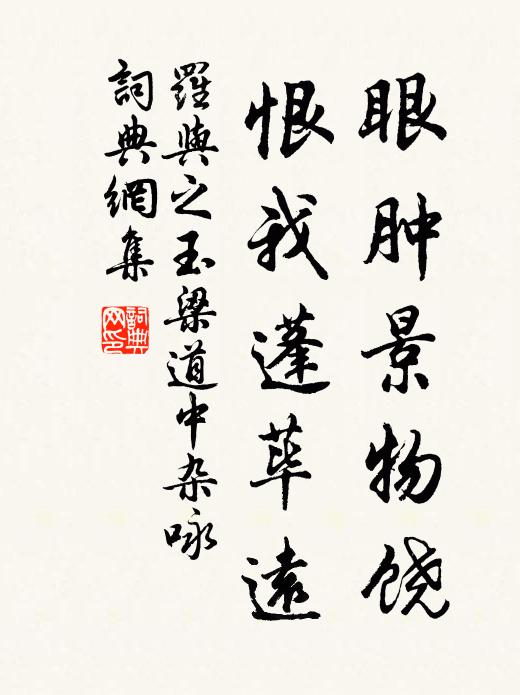 眼肿景物饶
恨我蓬荜遠
羅與之玉梁道中杂咏
詞典網集
詞典网印